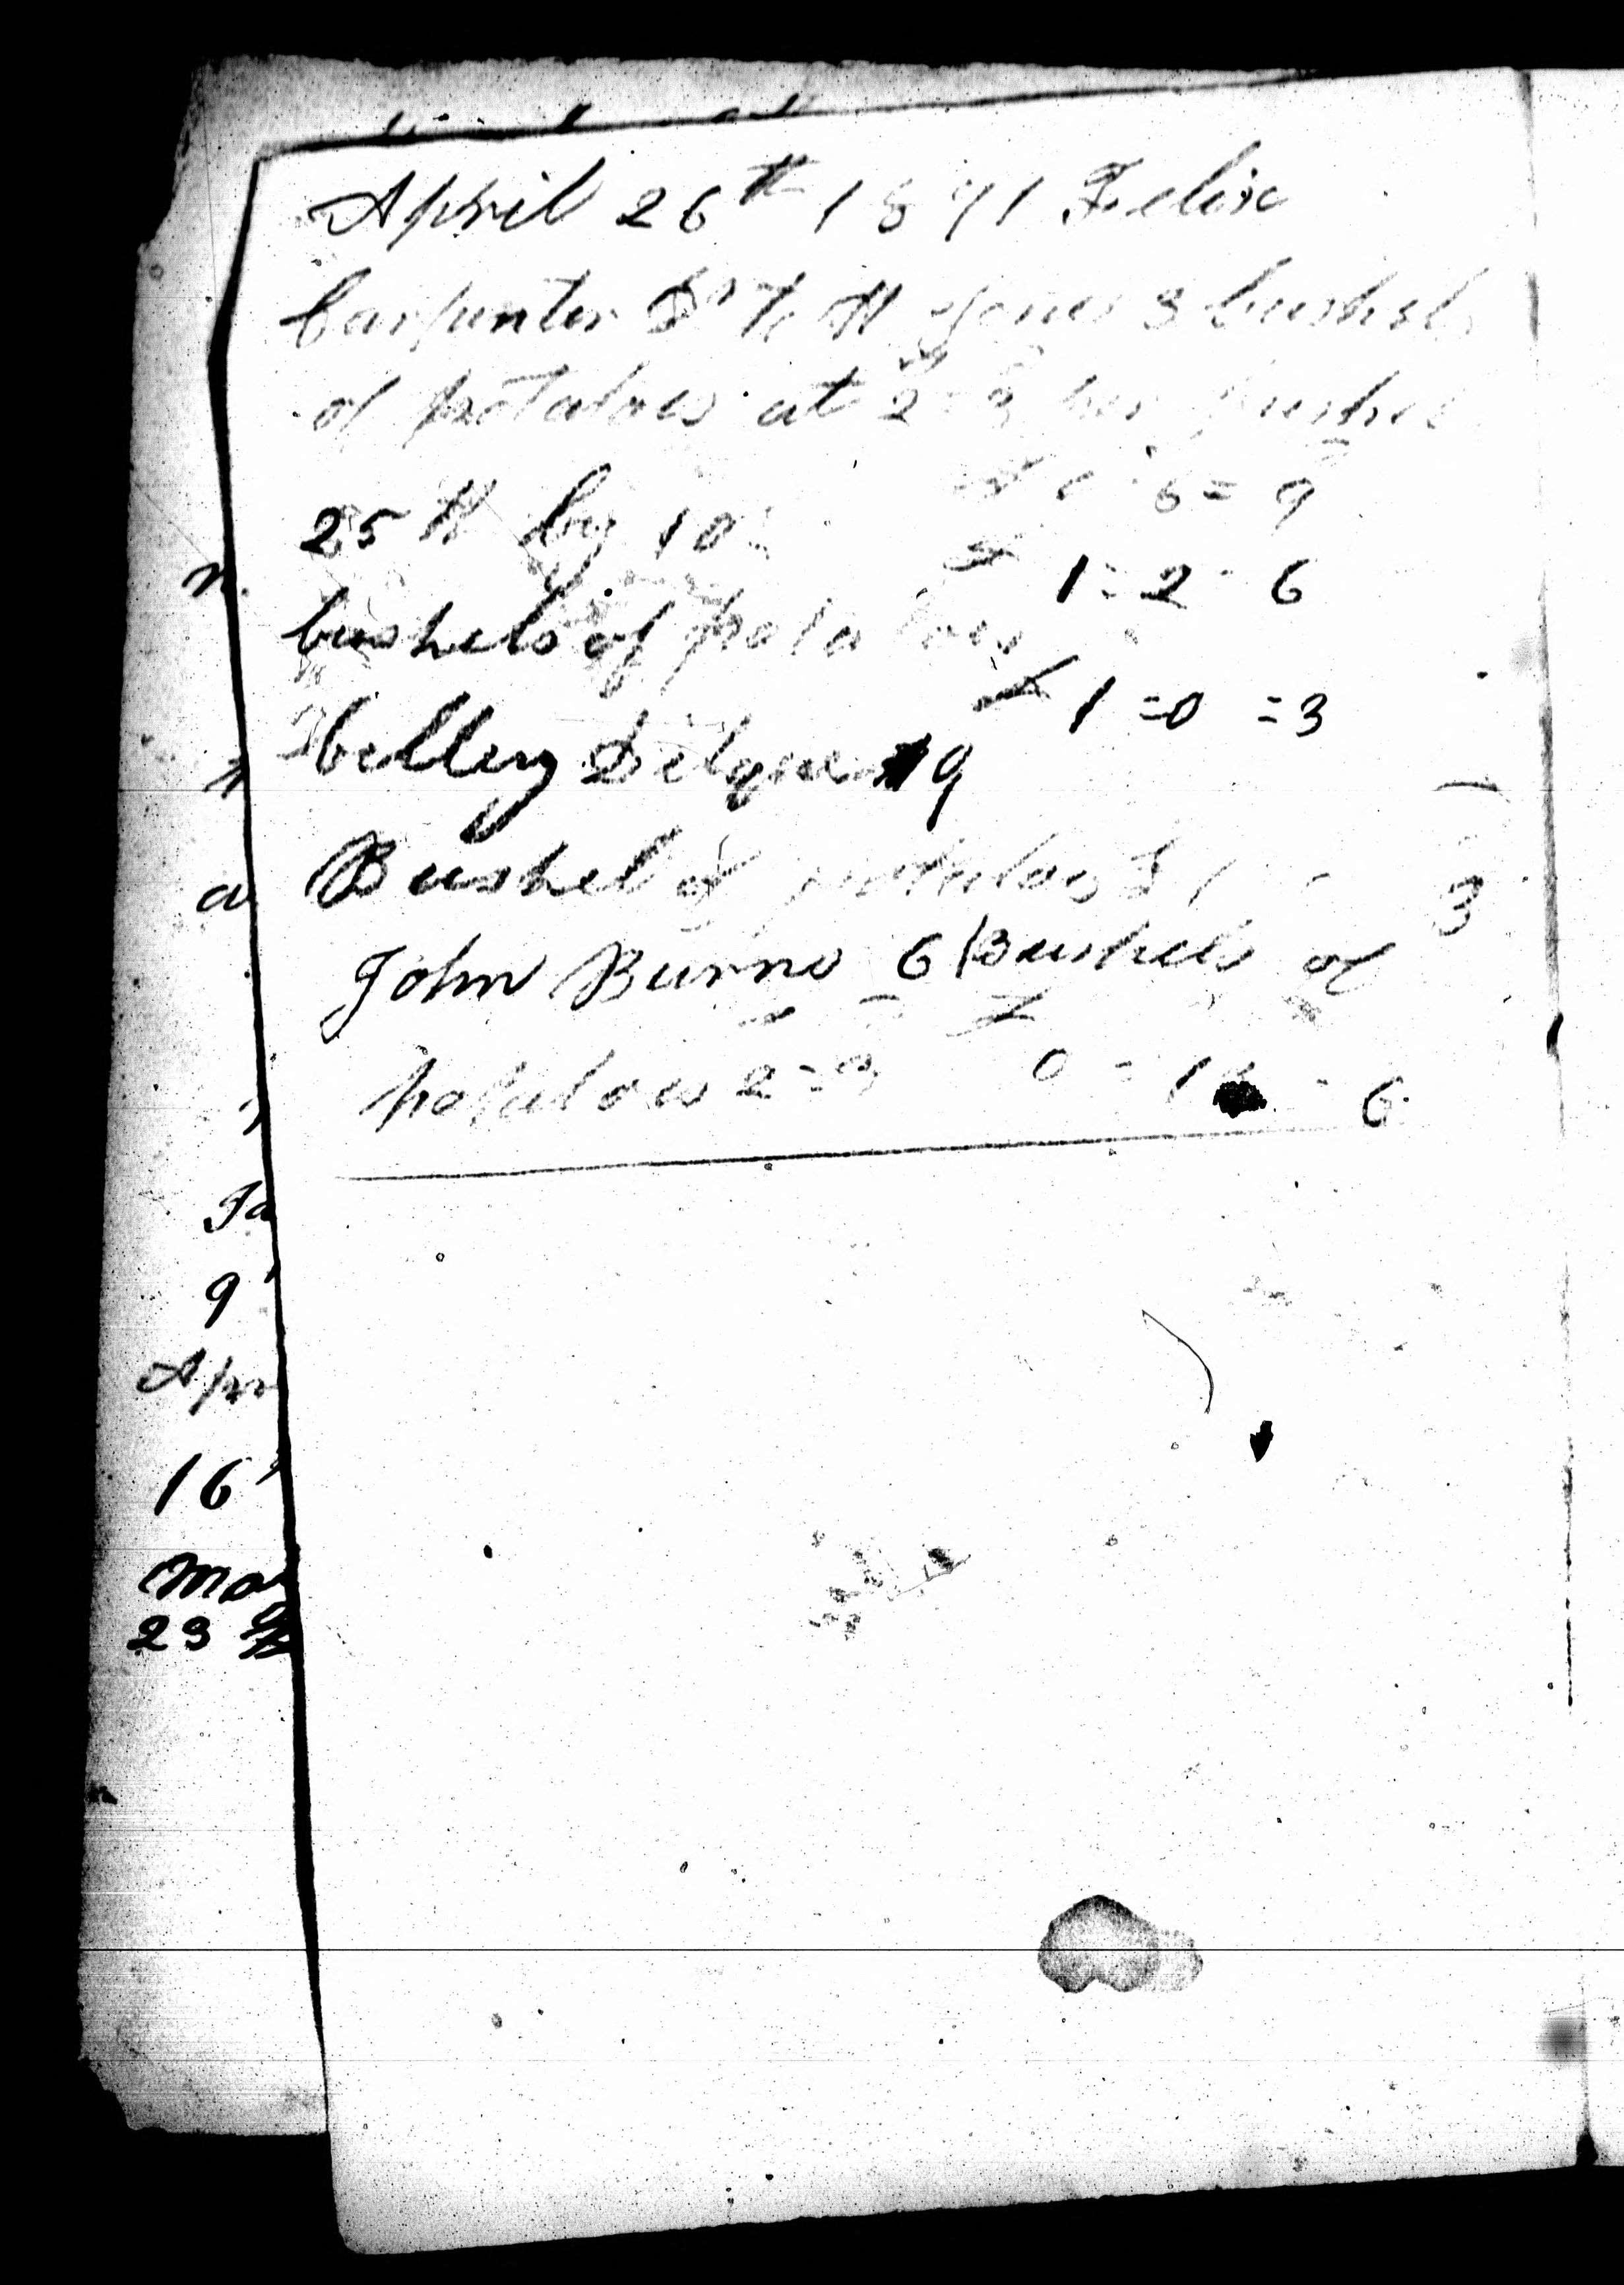 April 26th 1871 Felix
Carpenter Dr to H Jones 3 bushels
of potatoes at 2=3 per bushel
£ 0=6=9
25th by 10
£ 1=2=6
bushels of potatoes
£ 1=0=3
9
Bushel of potatoes
3
John Burns 6 Bushels of
potatoes 2=3 0=13=6
n
a
Ja
9
Apr
16
May
23